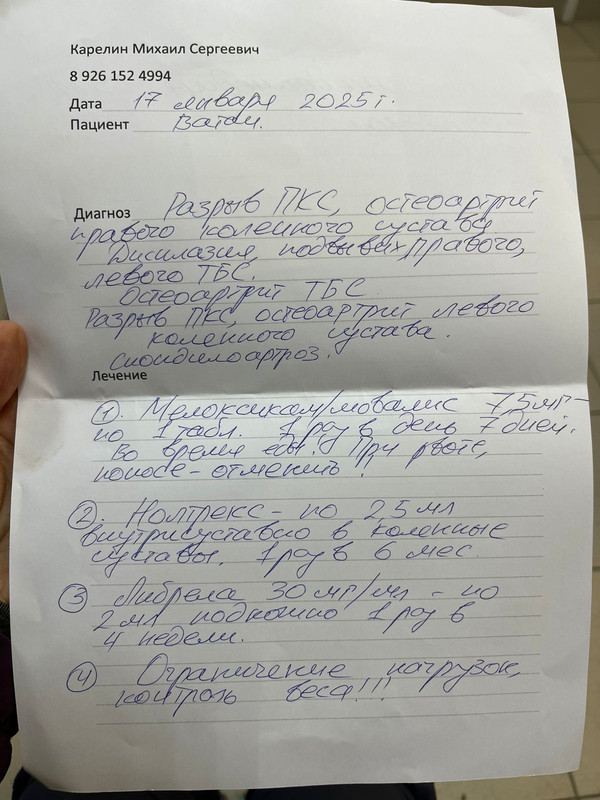 Карелин Михаил Сергеевич
8 926 152 4994
Дата 17 января 2025 г.
Пациент Ватсон.
Диагноз Разрыв ПКС, остеоартрит
правого коленного сустава.
Дисплазия, подвывих правого,
левого ТБС.
Остеоартрит ТБС
Разрыв ПКС, остеоартрит левого
коленного сустава.
Спондилоартроз.
Лечение
1. Мелоксикам/мовалис 7,5 мг –
по 1 табл. 1 раз в день 7 дней.
Во время еды. При рвоте,
поносе – отменить!
2. Нолтрекс – по 2,5 мл
внутрисуставно в коленные
суставы. 1 раз в 6 мес.
3 Либрела 30 мг/мл – по
2 мл подкожно 1 раз в
4 недели.
4 Ограничение нагрузок,
контроль веса!!!